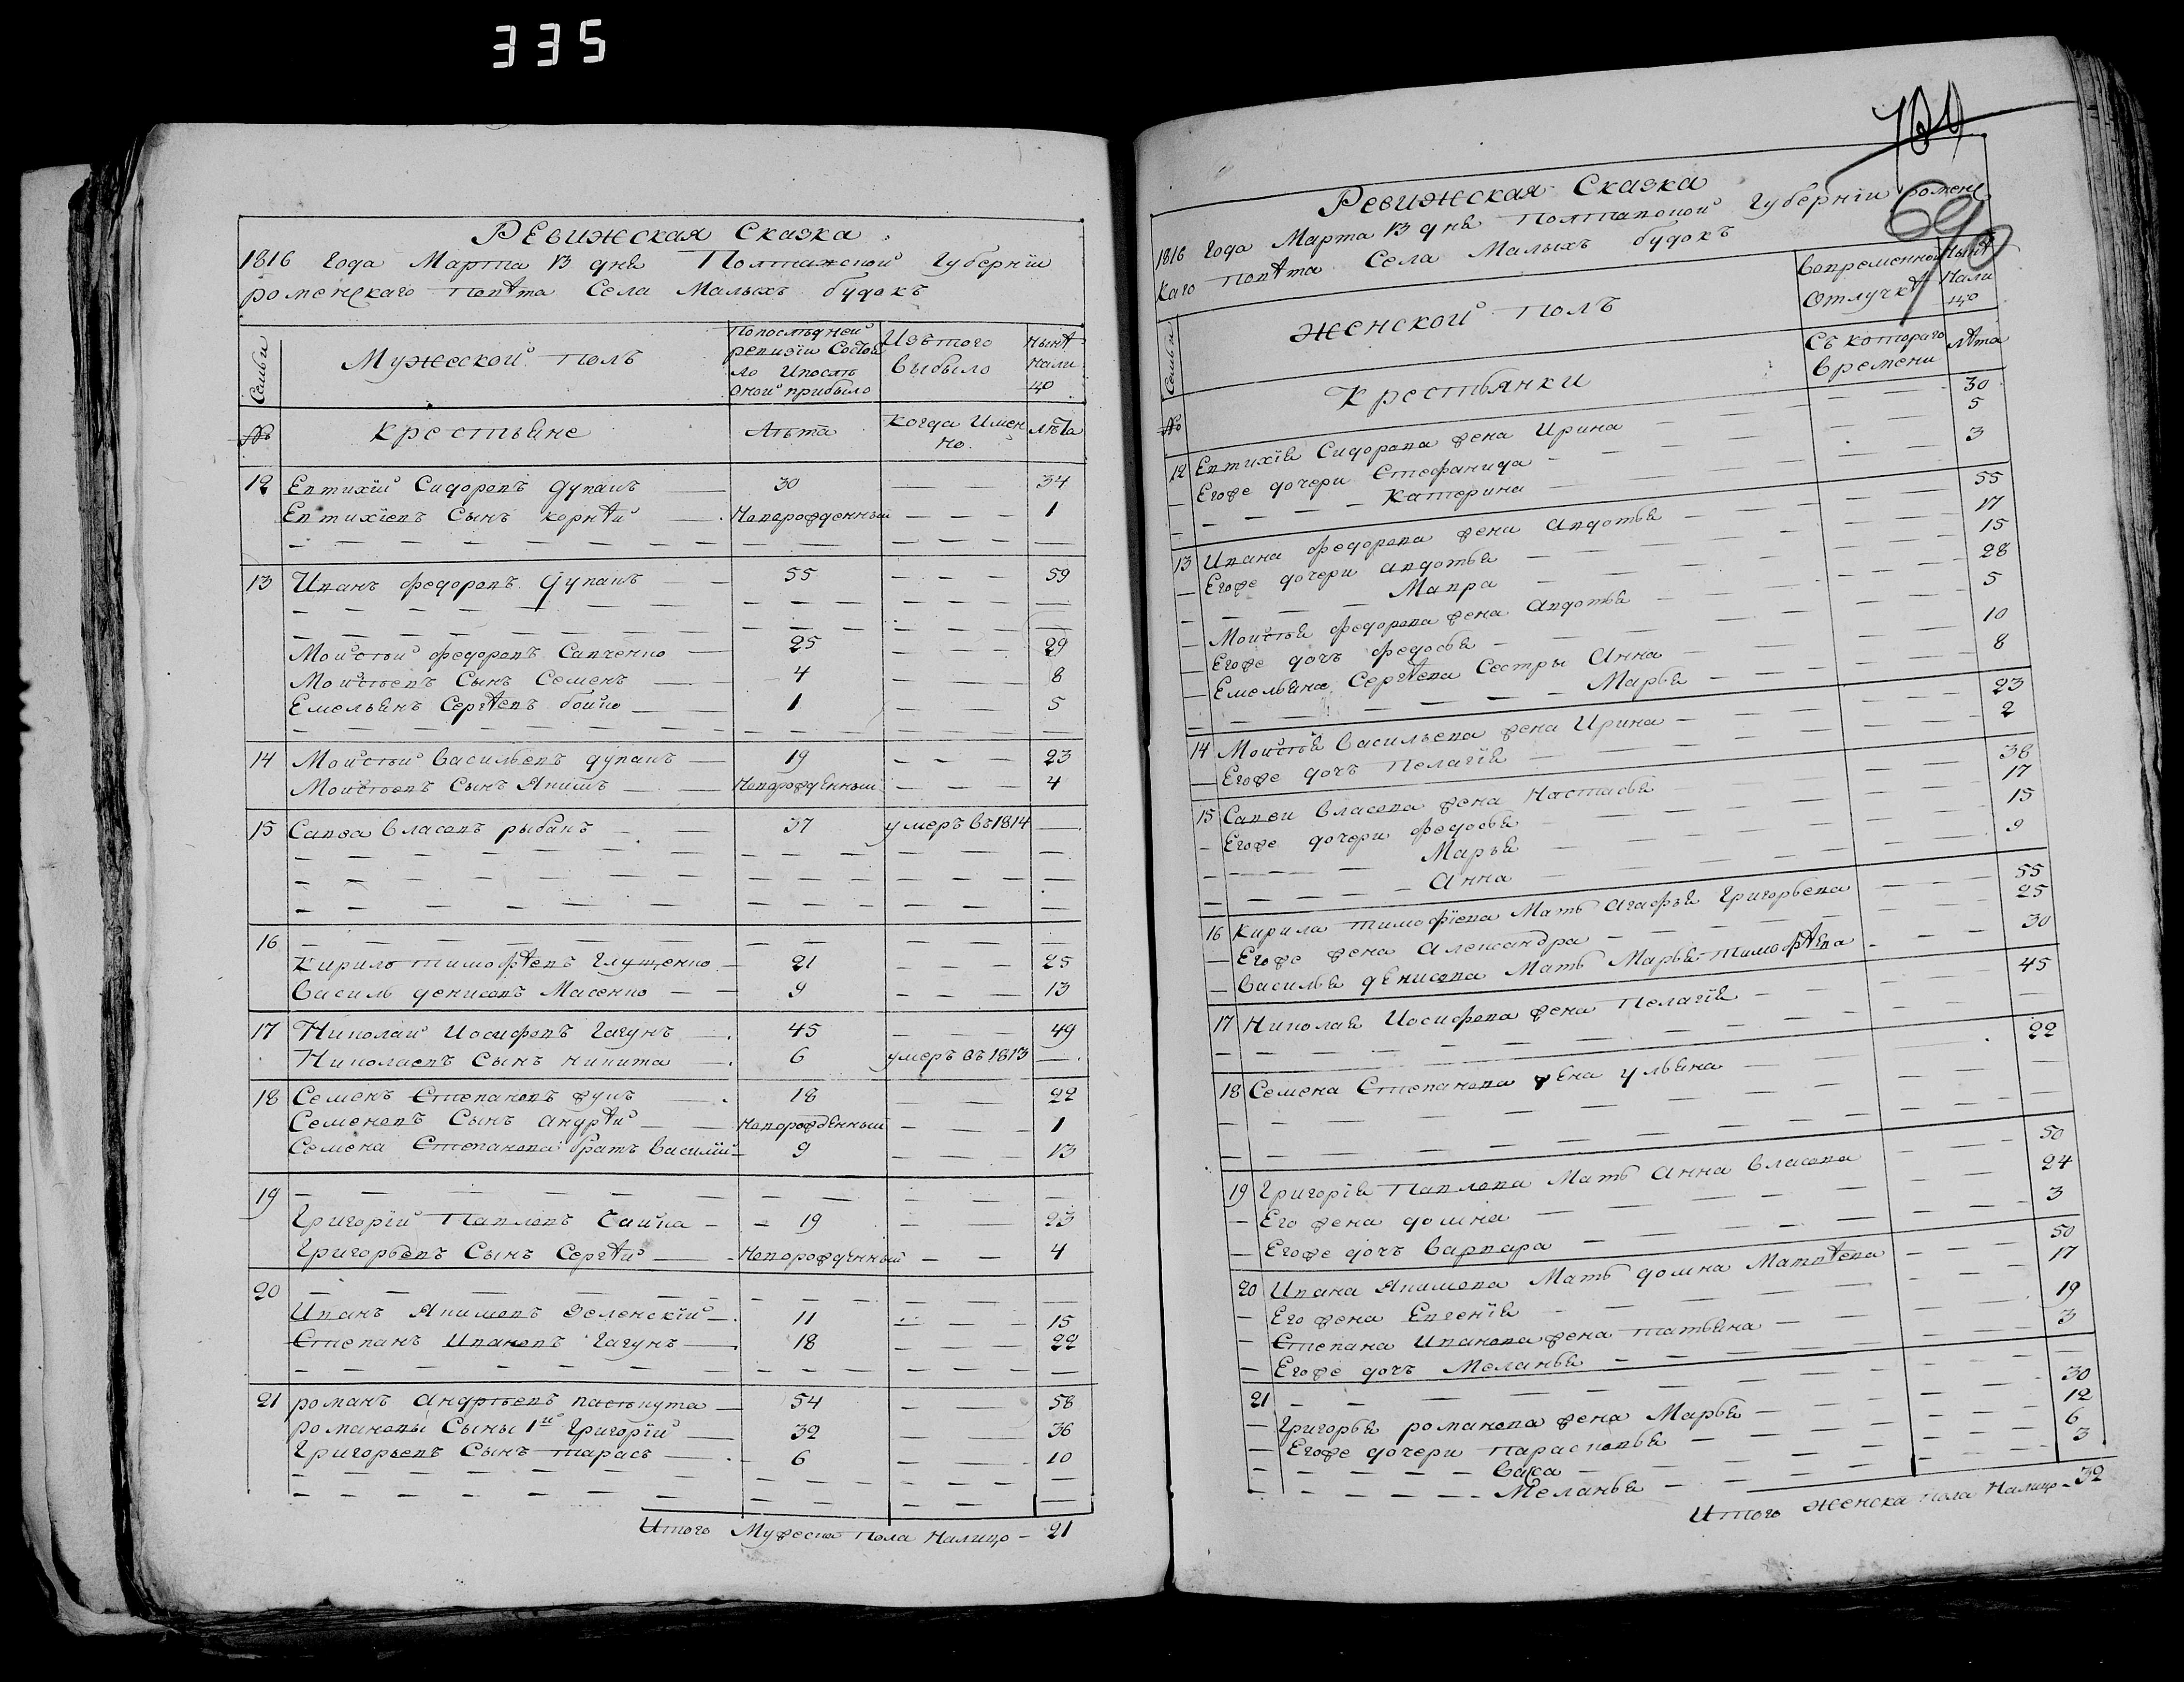 335
РЕвижская Сказка
1816 Года Марта 13 дня Полтавской Губерніи
роменскаго повѣта Села Малыхъ будокъ
Семьи
Мужеской полъ
Попослѣдней ревизіи Состояло Ипослѣ Оной прибыло
Изътого выбыло
Нынѣ Налицо
№
крестьяне
Лѣта
Когда Именно.
лѣта
12 Евтихій Сидоровъ дупанъ 30 — — — 34
Евтихіевъ Сынъ корнѣй Новорожденный — — — 1
13 Иванъ федоровъ дупанъ 55 — — — 59
Мойсѣй федоровъ Савченко 25 — — — 29
Мойсѣевъ Сынъ Семенъ 4 — — — 8
Емельянъ Сергѣевъ бойко 1 — — — 5
14 Мойсѣй васильевъ дупанъ 19 — — — 23
Мойсѣевъ Сынъ Якимъ Новорожденный — — — 4
15 Савва власовъ рыбакъ 37 умеръ въ 1814 —
16 — — — — — —
Кирило тимофѣевъ Глущенко 21 — — — 25
василь денисовъ Масенко 9 — — — 13
17 Николай Иосифовъ Гагунъ 45 — — 49
Николаевъ Сынъ никита 6 умеръ въ 1813 —
18 Семенъ Степановъ жукъ 18 — — 22
Семеновъ Сынъ андрѣй Новорожденный — — — 1
Семена Степанова братъ василій 9 — — — 13
19 — — — — — —
Григорій Павловъ Чайка 19 — — 23
Григорьевъ Сынъ Сергѣй Новорожденный — — 4
20 — — — — — —
Иванъ Якимовъ Зеленскій 11 — — — 15
Степанъ Ивановъ Гагунъ 18 — — — 22
21 романъ андрѣевъ пасѣкута 54 — — 58
романовы Сыны 1й Григорій 32 — — 36
Григорьевъ Сынъ тарасъ 6 — — — 10
Итого Мужеска пола налицо — 21
69
Ревижская Сказка
1816 Года Марта 13 дня Полтавской Губерніи роменс
каго повѣта Села Малыхъ будокъ
Семьи
женской полъ
вовременной Отлучкѣ
Нынѣ Налицо
№
Крестьянки
Съ котораго времени
лѣта
12 Евтихія Сидорова жена Ирина — — — 30
Егоже дочери Стефанида — — — 5
— — — Катерина — — — 3
13 Ивана федорова жена авдотья — — — 55
Егоже дочери авдотья — — — 17
— — — Мавра — — — 15
Мойсѣя федорова жена авдотья — — — 28
Егоже дочь федосья — — — 5
Емельяна Сергѣева Сестры Анна — — — 10
— — — Марья — — — 8
14 Мойсѣя васильева жена Ирина — — — 23
Егоже дочь пелагія — — — 2
15 Савви власова жена Настасья — — — 38
Егоже дочери федосья — — — 17
— — — Марья — — — 15
— — — Анна — — — 9
16 Кирила тимофіева Мать агафья Григорьева — — — 55
Егоже жена александра — — — 25
василья дениsова Мать Марья тимофѣева — — — 30
17 Николая Иосифова жена Пелагія — — — 45
18 Семена Степанова жена ульяна — — — 22
19 Григорія Павлова Мать анна власова — — — 50
Его жена домна — — — 24
Егоже дочь варвара — — — 3
20 Ивана Якимова Мать домна Матвѣева — — — 50
Его жена Евгенія — — — 17
Степана Иванова жена татьяна — — — 19
Егоже дочь Меланья — — — 3
21 — — — — — —
Григорья романова жена Марья — — — 30
Егоже дочери парасковья — — — 12
— — — васса — — — 6
— — — Меланья — — — 3
Итого женска пола Налицо — 32